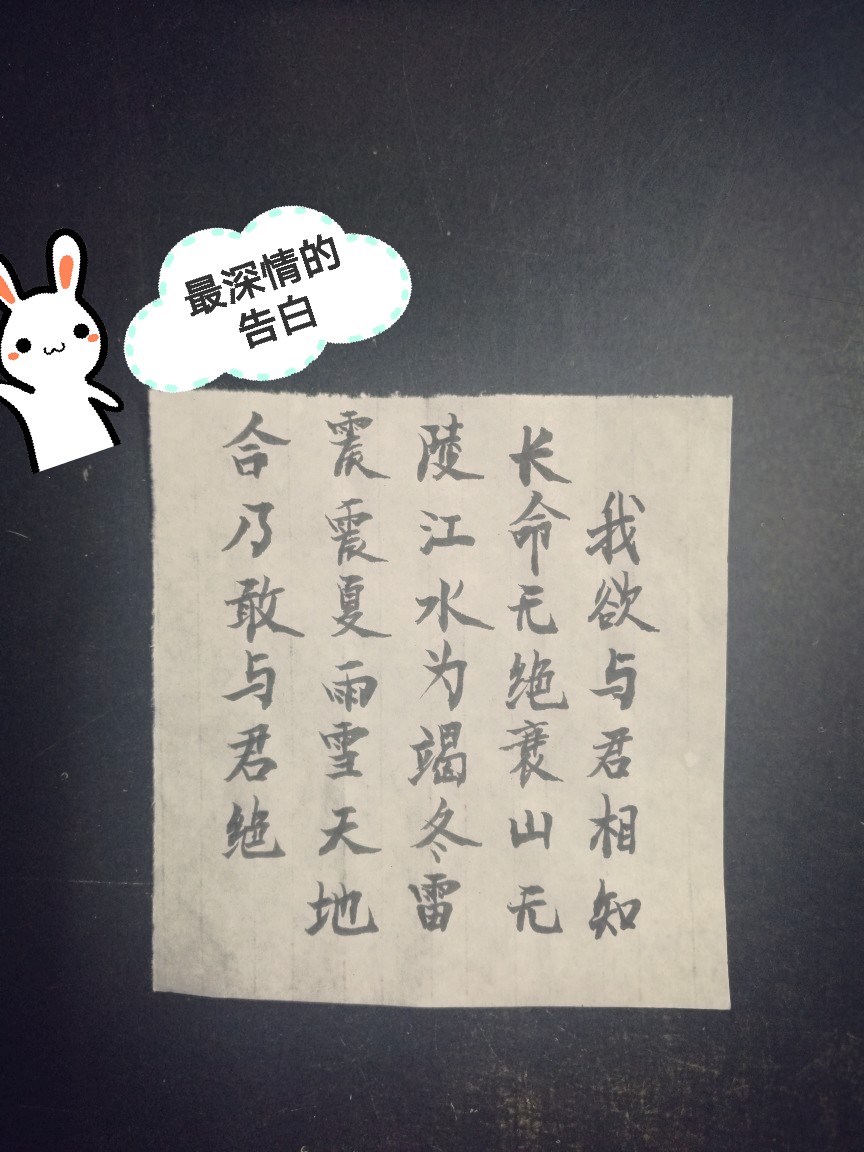 最深情的
告白
我欲与君相知
长命无绝衰山无
陵江水为竭冬雷
震震夏雨雪天地
合乃敢与君绝